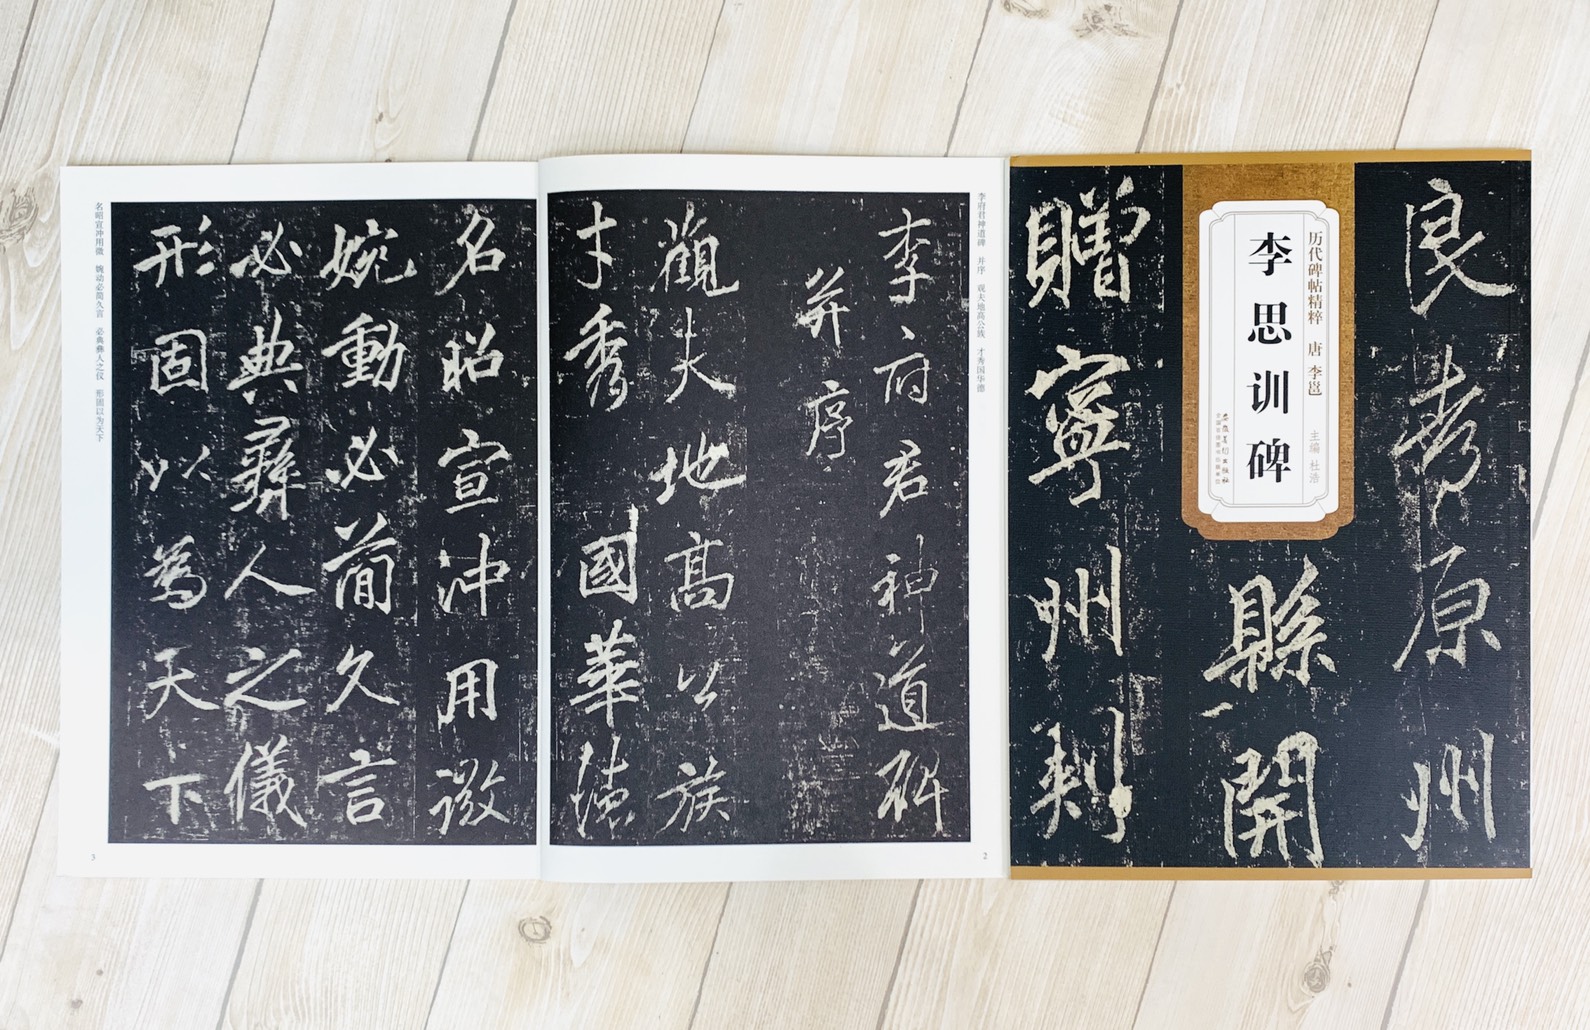 李府君神道碑
并序
觀夫地高公族
才秀國華德
李府君神道碑 并序 观夫地高公族 才秀国华德
2
名昭宣沖用微
婉動必簡久言
必典彝人之儀
形固以為天下
名昭宣冲用微 婉动必简久言 必典彝人之仪 形固以为天下
3
历代碑帖精粹 唐 李邕
主编 杜浩
李思训碑
安徽美术出版社
良考原州
縣開
贈寧州刺